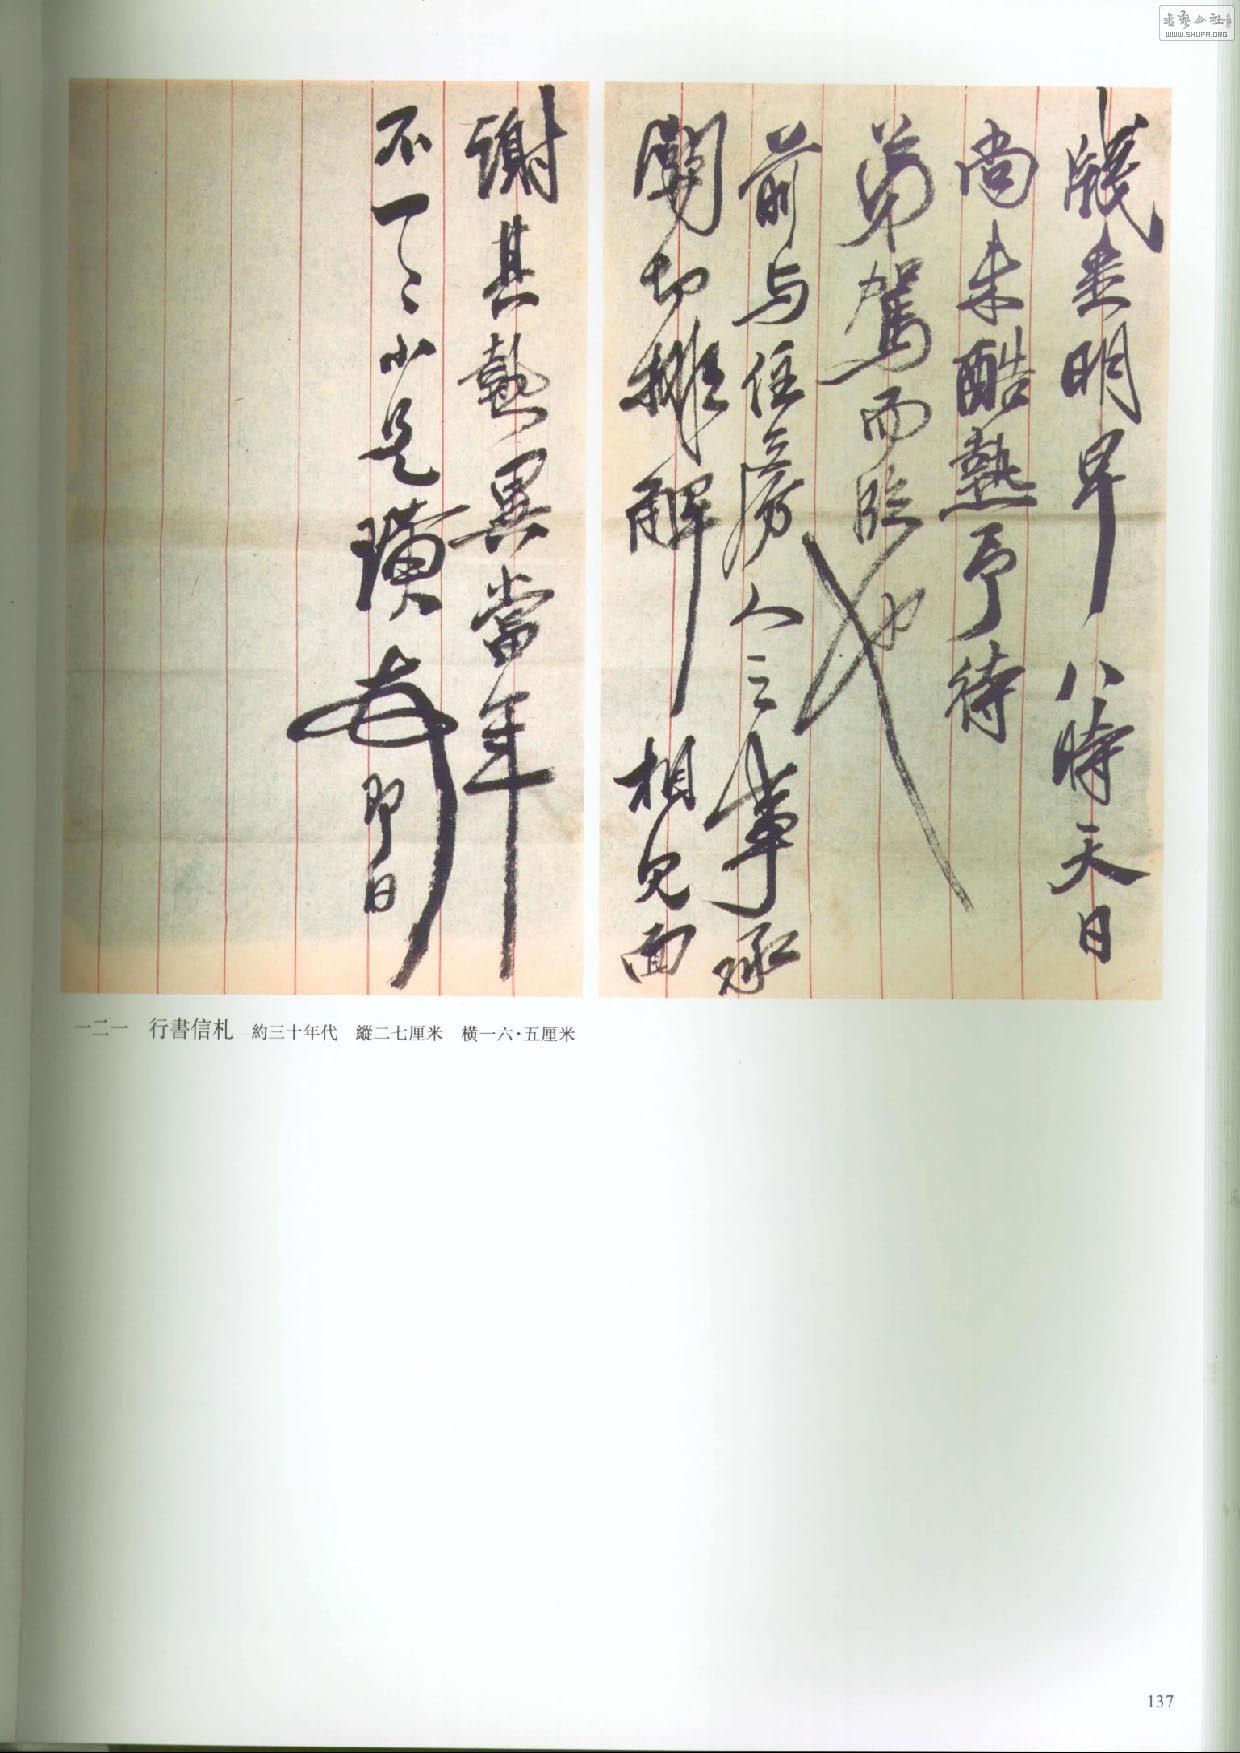 书艺公社
WWW.SHUFA.ORG
牋悉明早八時天日
尚未酷熱予待
弟駕而臨也
前与任房人之事承
関切排解相見面
謝其熱異當年
不一一小兄璜
即日
一二一　行書信札　約三十年代　縱二七厘米　橫一六·五厘米
137